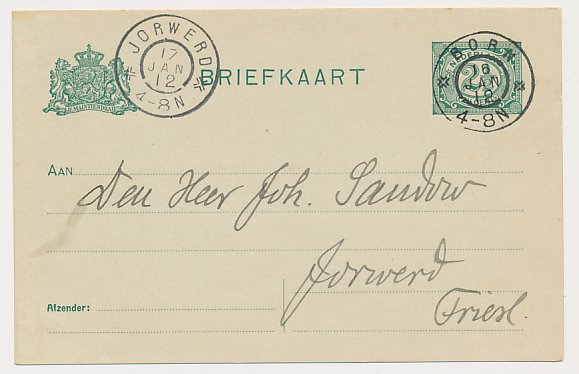 JORWERD
17
JAN
12
4-8N
JE MAINTIENDRAI
BRIEFKAART
BORN
16
JAN
12
4-8N
NEDERLAND
2½
AAN
Den Heer Joh. Sandow
Jorwerd
Friesl.
Afzender: